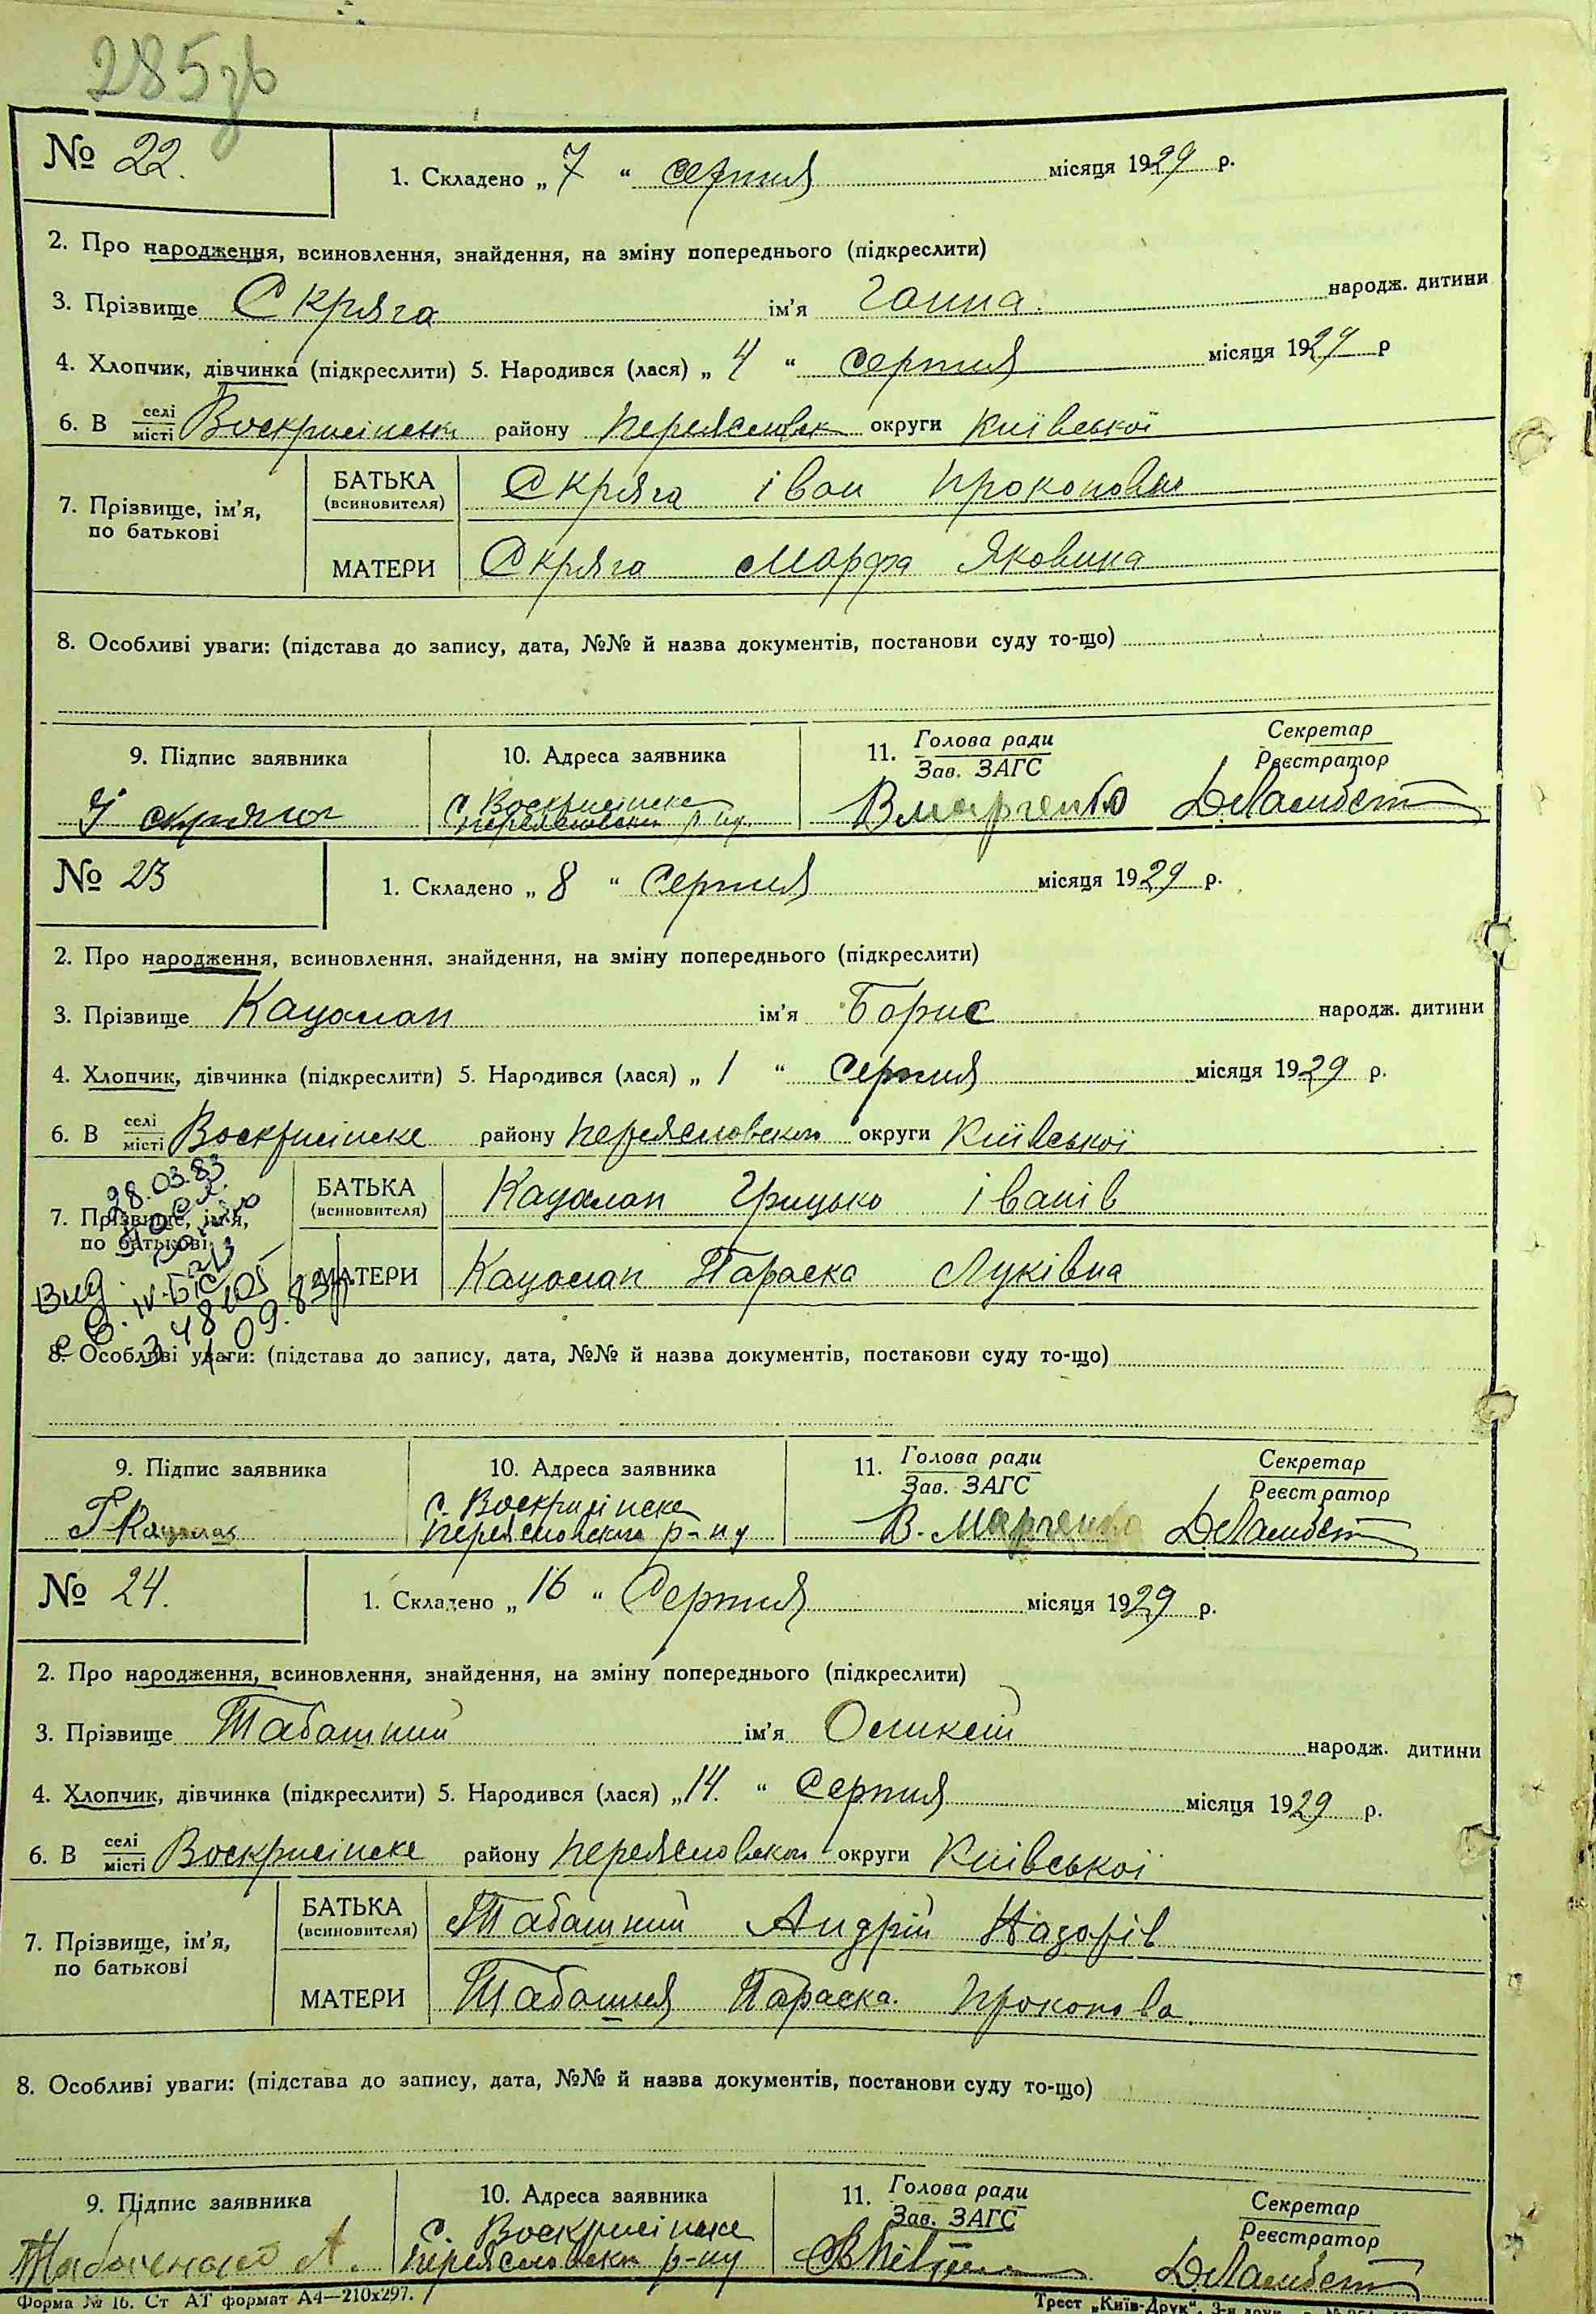 285зв
№ 22.
1. Складено „ 7 “ серпня місяця 1929 р.
2. Про народження, всиновлення, знайдення, на зміну попереднього (підкреслити)
3. Прізвище Скряга ім'я Ганна. народж. дитини
4. Хлопчик, дівчинка (підкреслити) 5. Народився (лася) „ 4 “ серпня місяця 1929 р
6. В селі/місті Воскрисінськ району Переяславськ округи Київської
7. Прізвище, ім'я, по батькові
БАТЬКА (всиновителя) Скряга Іван Прокопович
МАТЕРИ Скряга Марфа Яковина
8. Особливі уваги: (підстава до запису, дата, №№ й назва документів, постанови суду то-що)
9. Підпис заявника 10. Адреса заявника 11. Голова ради/Зав. ЗАГС Секретар/Реєстратор
І скряга с. Воскрисінське Переяславськ р-ну. В марченко
№ 23
1. Складено „ 8 “ Серпня місяця 1929 р.
2. Про народження, всиновлення. знайдення, на зміну попереднього (підкреслити)
3. Прізвище Кацалап ім'я Борис народж. дитини
4. Хлопчик, дівчинка (підкреслити) 5. Народився (лася) „ 1 “ Серпня місяця 1929 р.
6. В селі/місті Воскрисінське району Переяславського округи Київської
28.03.83
7. Прізвище, ім'я, по батькові
БАТЬКА (всиновителя) Кацалап Грицько Іванів
МАТЕРИ Кацалап Параска Луківна
Вид.
с в. IV-БК
348105
09.83
8. Особливі уваги: (підстава до запису, дата, №№ й назва документів, постакови суду то-що)
9. Підпис заявника 10. Адреса заявника 11. Голова ради/Зав. ЗАГС Секретар/Реєстратор
Г Кацалап с. Воскрисінське Переяславського р-ну В. Марченко
№ 24.
1. Складено „ 16 “ Серпня місяця 1929 р.
2. Про народження, всиновлення, знайдення, на зміну попереднього (підкреслити)
3. Прізвище Табашний ім'я Оликсій народж. дитини
4. Хлопчик, дівчинка (підкреслити) 5. Народився (лася) „ 14. “ Серпня місяця 1929 р.
6. В селі/місті Воскрисінське району Переяславськог округи Київської
7. Прізвище, ім'я, по батькові
БАТЬКА (всиновителя) Табашний Андрій Назарів
МАТЕРИ Табашня Параска. Прокопова.
8. Особливі уваги: (підстава до запису, дата, №№ й назва документів, постанови суду то-що)
9. Підпис заявника 10. Адреса заявника 11. Голова ради/Зав. ЗАГС Секретар/Реєстратор
А. с. Воскрисінське Переяславськог р-ну
Форма № 16. Ст АТ формат А4—210х297. Трест „Київ-Друк“,